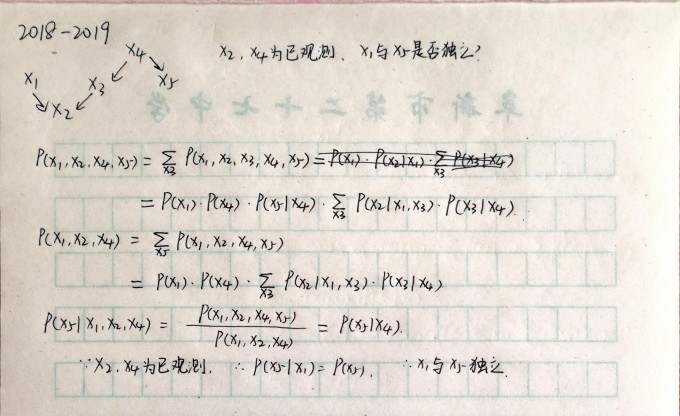 2018-2019
X₂, X₄为已观测. X₁与X₅是否独立?
X₄
X₁ X₃ X₅
X₂
阜新市第二十七中学
P(X₁,X₂,X₄,X₅) = ∑X₃ P(X₁,X₂,X₃,X₄,X₅) = P(X₁)·P(X₂|X₁)·∑X₃ P(X₃|X₄)
= P(X₁)·P(X₄)·P(X₅|X₄)·∑X₃ P(X₂|X₁,X₃)·P(X₃|X₄).
P(X₁,X₂,X₄) = ∑X₅ P(X₁,X₂,X₄,X₅)
= P(X₁)·P(X₄)·∑X₃ P(X₂|X₁,X₃)·P(X₃|X₄)
P(X₅|X₁,X₂,X₄) = P(X₁,X₂,X₄,X₅) / P(X₁,X₂,X₄) = P(X₅|X₄).
∵X₂,X₄为已观测. ∴P(X₅|X₁)=P(X₅). ∴X₁与X₅独立.